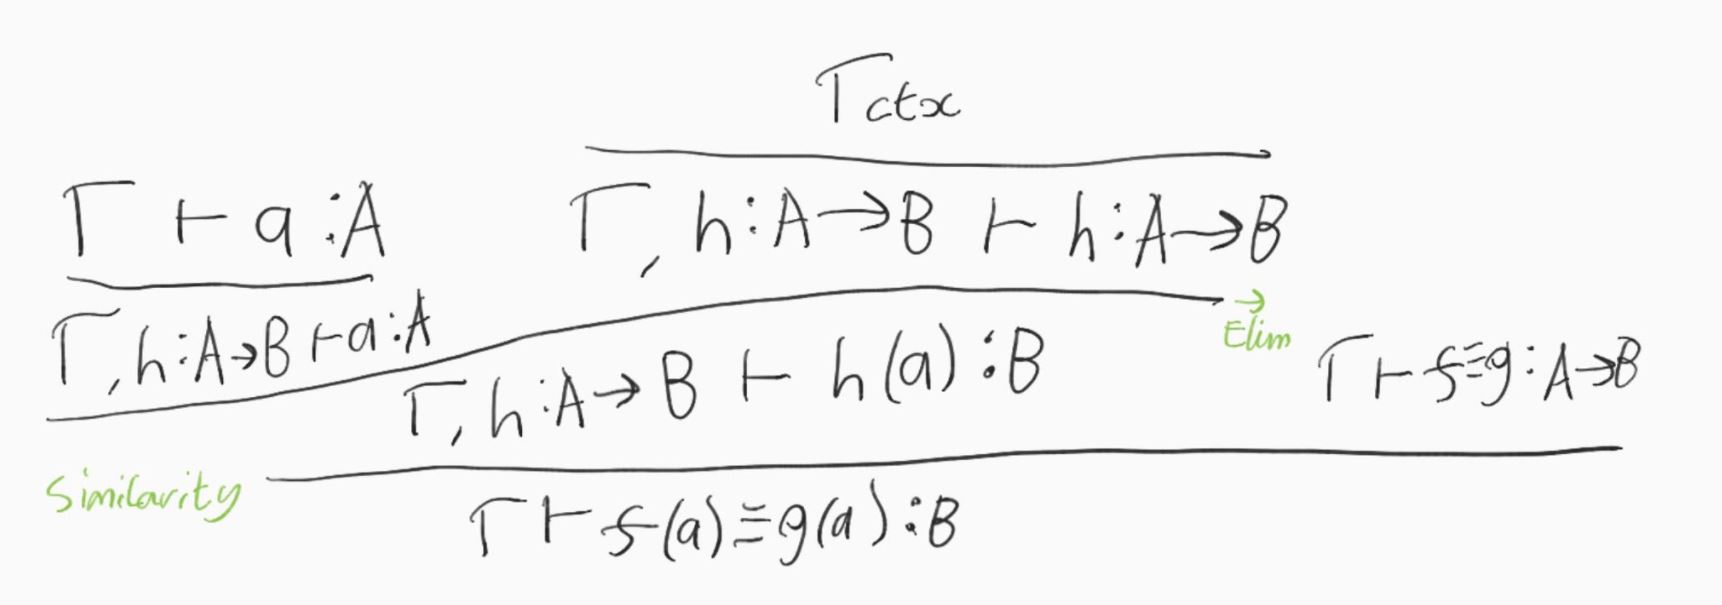 Γ ctx
Γ ⊢ a : A
Γ, h : A → B ⊢ h : A → B
Γ, h : A → B ⊢ a : A
→ Elim
Γ, h : A → B ⊢ h(a) : B
Γ ⊢ f ≡ g : A → B
Similarity
Γ ⊢ f(a) ≡ g(a) : B